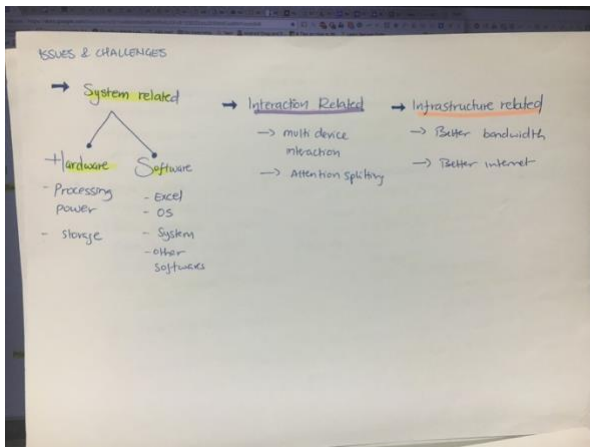 ISSUES & CHALLENGES
→ System related
Hardware
- Processing
power
- storage
Software
- Excel
- OS
- System
- other
softwares
→ Interaction Related
→ multi device
interaction
→ Attention spliting
→ Infrastructure related
→ Better bandwidth
→ Better internet